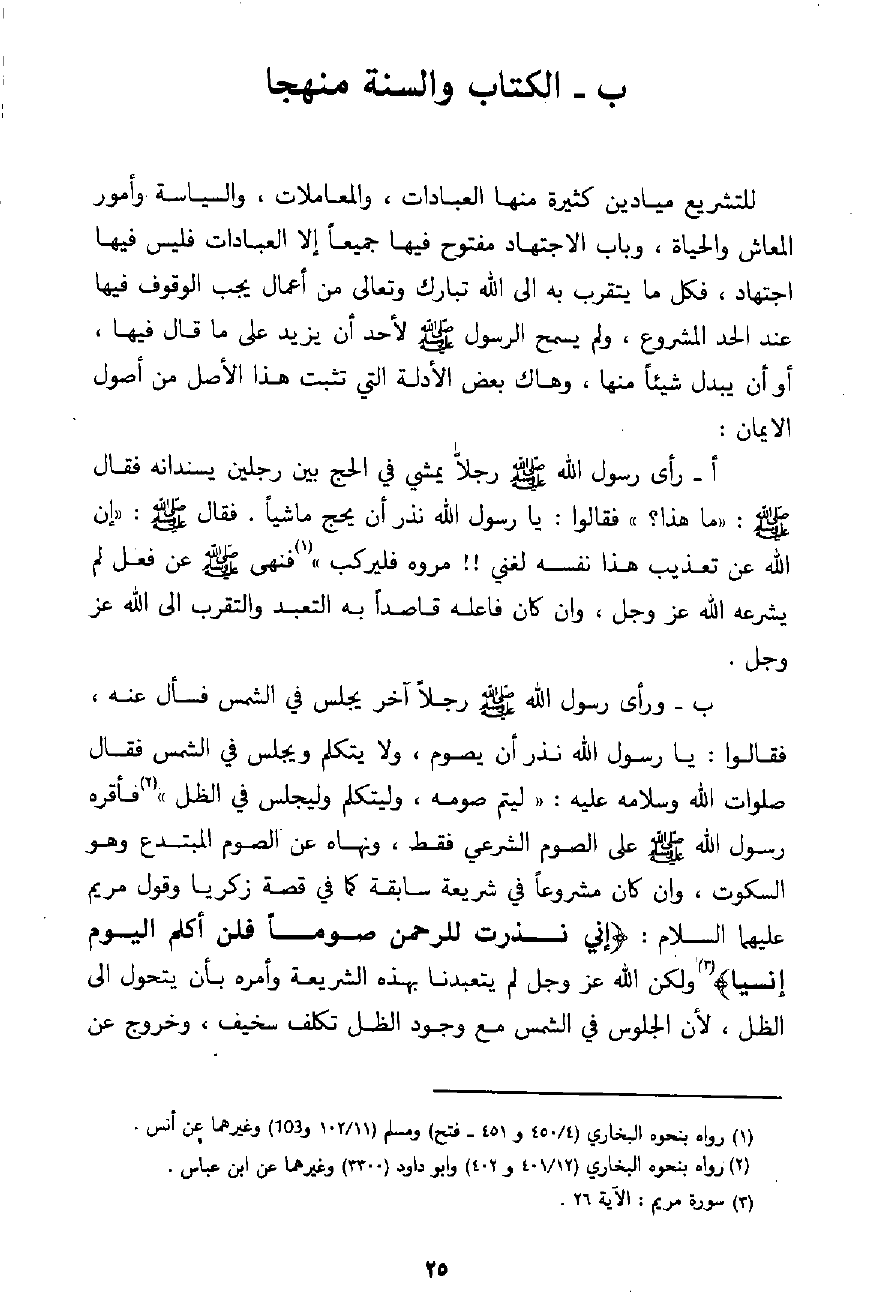 ب - الكتاب والسنة منهجا
للتشريع ميادين كثيرة منها العبادات ، والمعاملات ، والسياسة وأمور
المعاش والحياة ، وباب الاجتهاد مفتوح فيها جميعاً إلا العبادات فليس فيها
اجتهاد ، فكل ما يتقرب به الى الله تبارك وتعالى من أعمال يجب الوقوف فيها
عند الحد المشروع ، ولم يسمح الرسول ﷺ لأحد أن يزيد على ما قال فيها ،
أو أن يبدل شيئاً منها ، وهاك بعض الأدلة التي تثبت هذا الأصل من أصول
الايمان :
أ - رأى رسول الله ﷺ رجلاً يمشي في الحج بين رجلين يسندانه فقال
ﷺ : «ما هذا؟ » فقالوا : يا رسول الله نذر أن يحج ماشياً . فقال ﷺ : «إن
الله عن تعذيب هذا نفسه لغني !! مروه فليركب »(١) فنهى ﷺ عن فعل لم
يشرعه الله عز وجل ، وان كان فاعله قاصداً به التعبد والتقرب الى الله عز
وجل .
ب - ورأى رسول الله ﷺ رجلاً آخر يجلس في الشمس فسأل عنه ،
فقالوا : يا رسول الله نذر أن يصوم ، ولا يتكلم ويجلس في الشمس فقال
صلوات الله وسلامه عليه : « ليتم صومه ، وليتكلم وليجلس في الظل »(٢) فأقره
رسول الله ﷺ على الصوم الشرعي فقط ، ونهاه عن الصوم المبتدع وهو
السكوت ، وان كان مشروعاً في شريعة سابقة كما في قصة زكريا وقول مريم
عليها السلام : ﴿إني نذرت للرحمن صوماً فلن أكلم اليوم
إنسيا﴾(٣) ولكن الله عز وجل لم يتعبدنا بهذه الشريعة وأمره بأن يتحول الى
الظل ، لأن الجلوس في الشمس مع وجود الظل تكلف سخيف ، وخروج عن
(١) رواه بنحوه البخاري (٤٥٠/٤ و ٤٥١ - فتح) ومسلم (١٠٢/١١ و103) وغيرهما عن أنس .
(٢) رواه بنحوه البخاري (٤٠١/١٢ و ٤٠٢) وابو داود (٣٣٠٠) وغيرهما عن ابن عباس .
(٣) سورة مريم : الآية ٢٦ .
٢٥